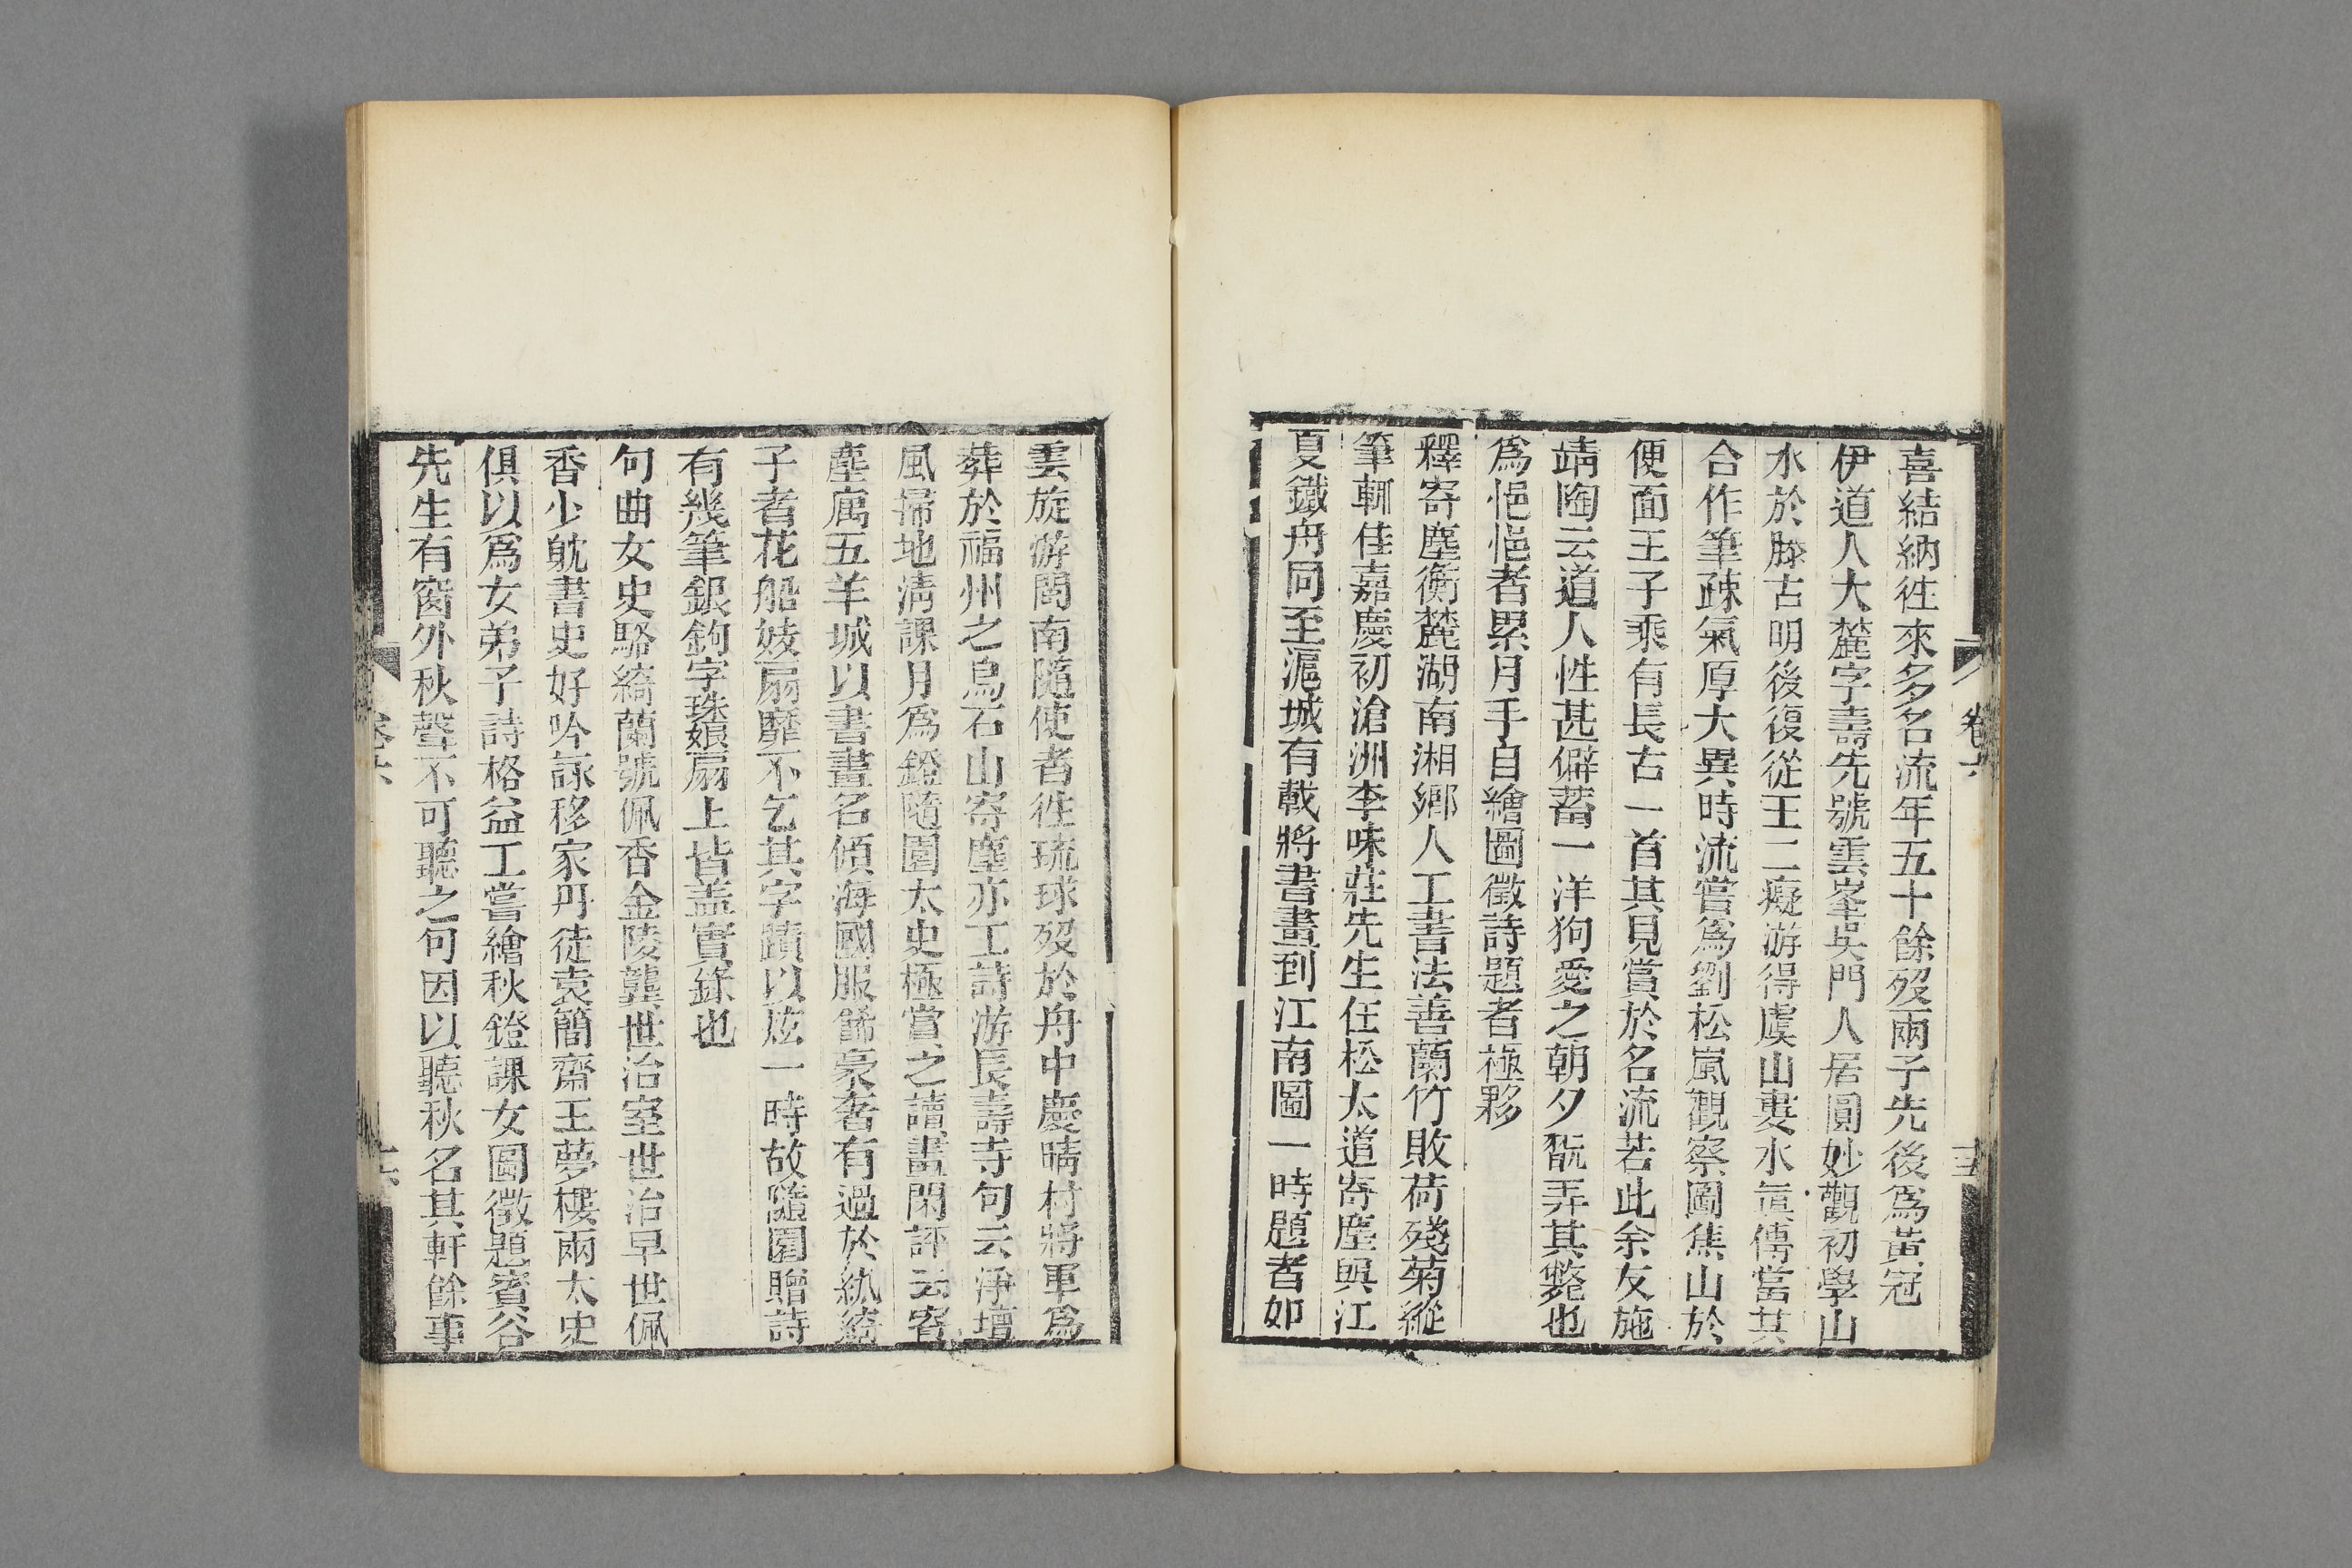 喜結納徃來多名流年五十餘歿兩子先後爲黃冠
伊道人大麓字壽先號雲峯吳門人居圓妙觀初學山
水於滕古明後復從王二癡游得虞山婁水眞傳當其
合作筆疎氣厚大異時流嘗爲劉松嵐觀察圖焦山於
便面王子乘有長古一首其見賞於名流若此余友施
靖陶云道人性甚僻蓄一洋狗愛之朝夕翫弄其斃也
爲悒悒者累月手自繪圖徵詩題者極夥
釋寄塵衡麓湖南湘鄉人工書法善蘭竹敗荷殘菊縱
筆輒佳嘉慶初滄洲李味莊先生任松太道寄塵與江
夏鐵舟同至滬城有載將書畫到江南圖一時題者如
卷六
十五
雲旋游閩南隨使者徃琉球歿於舟中慶晴村將軍爲
葬於福州之烏石山寄塵亦工詩游長壽寺句云淨壇
風掃地清課月爲鐙隨園太史極賞之讀畫閑評云寄
塵寓五羊城以書畫名傾海國服餙豪奢有過於紈綺
子者花船妓扇靡不乞其字蹟以炫一時故隨園贈詩
有幾筆銀鉤字珠孃扇上皆盖實錄也
句曲女史駱綺蘭號佩香金陵龔世治室世治早世佩
香少躭書史好吟詠移家丹徒袁簡齋王夢樓兩太史
俱以爲女弟子詩格益工嘗繪秋鐙課女圖徵題賓谷
先生有窗外秋聲不可聽之句因以聽秋名其軒餘事
卷六
十六